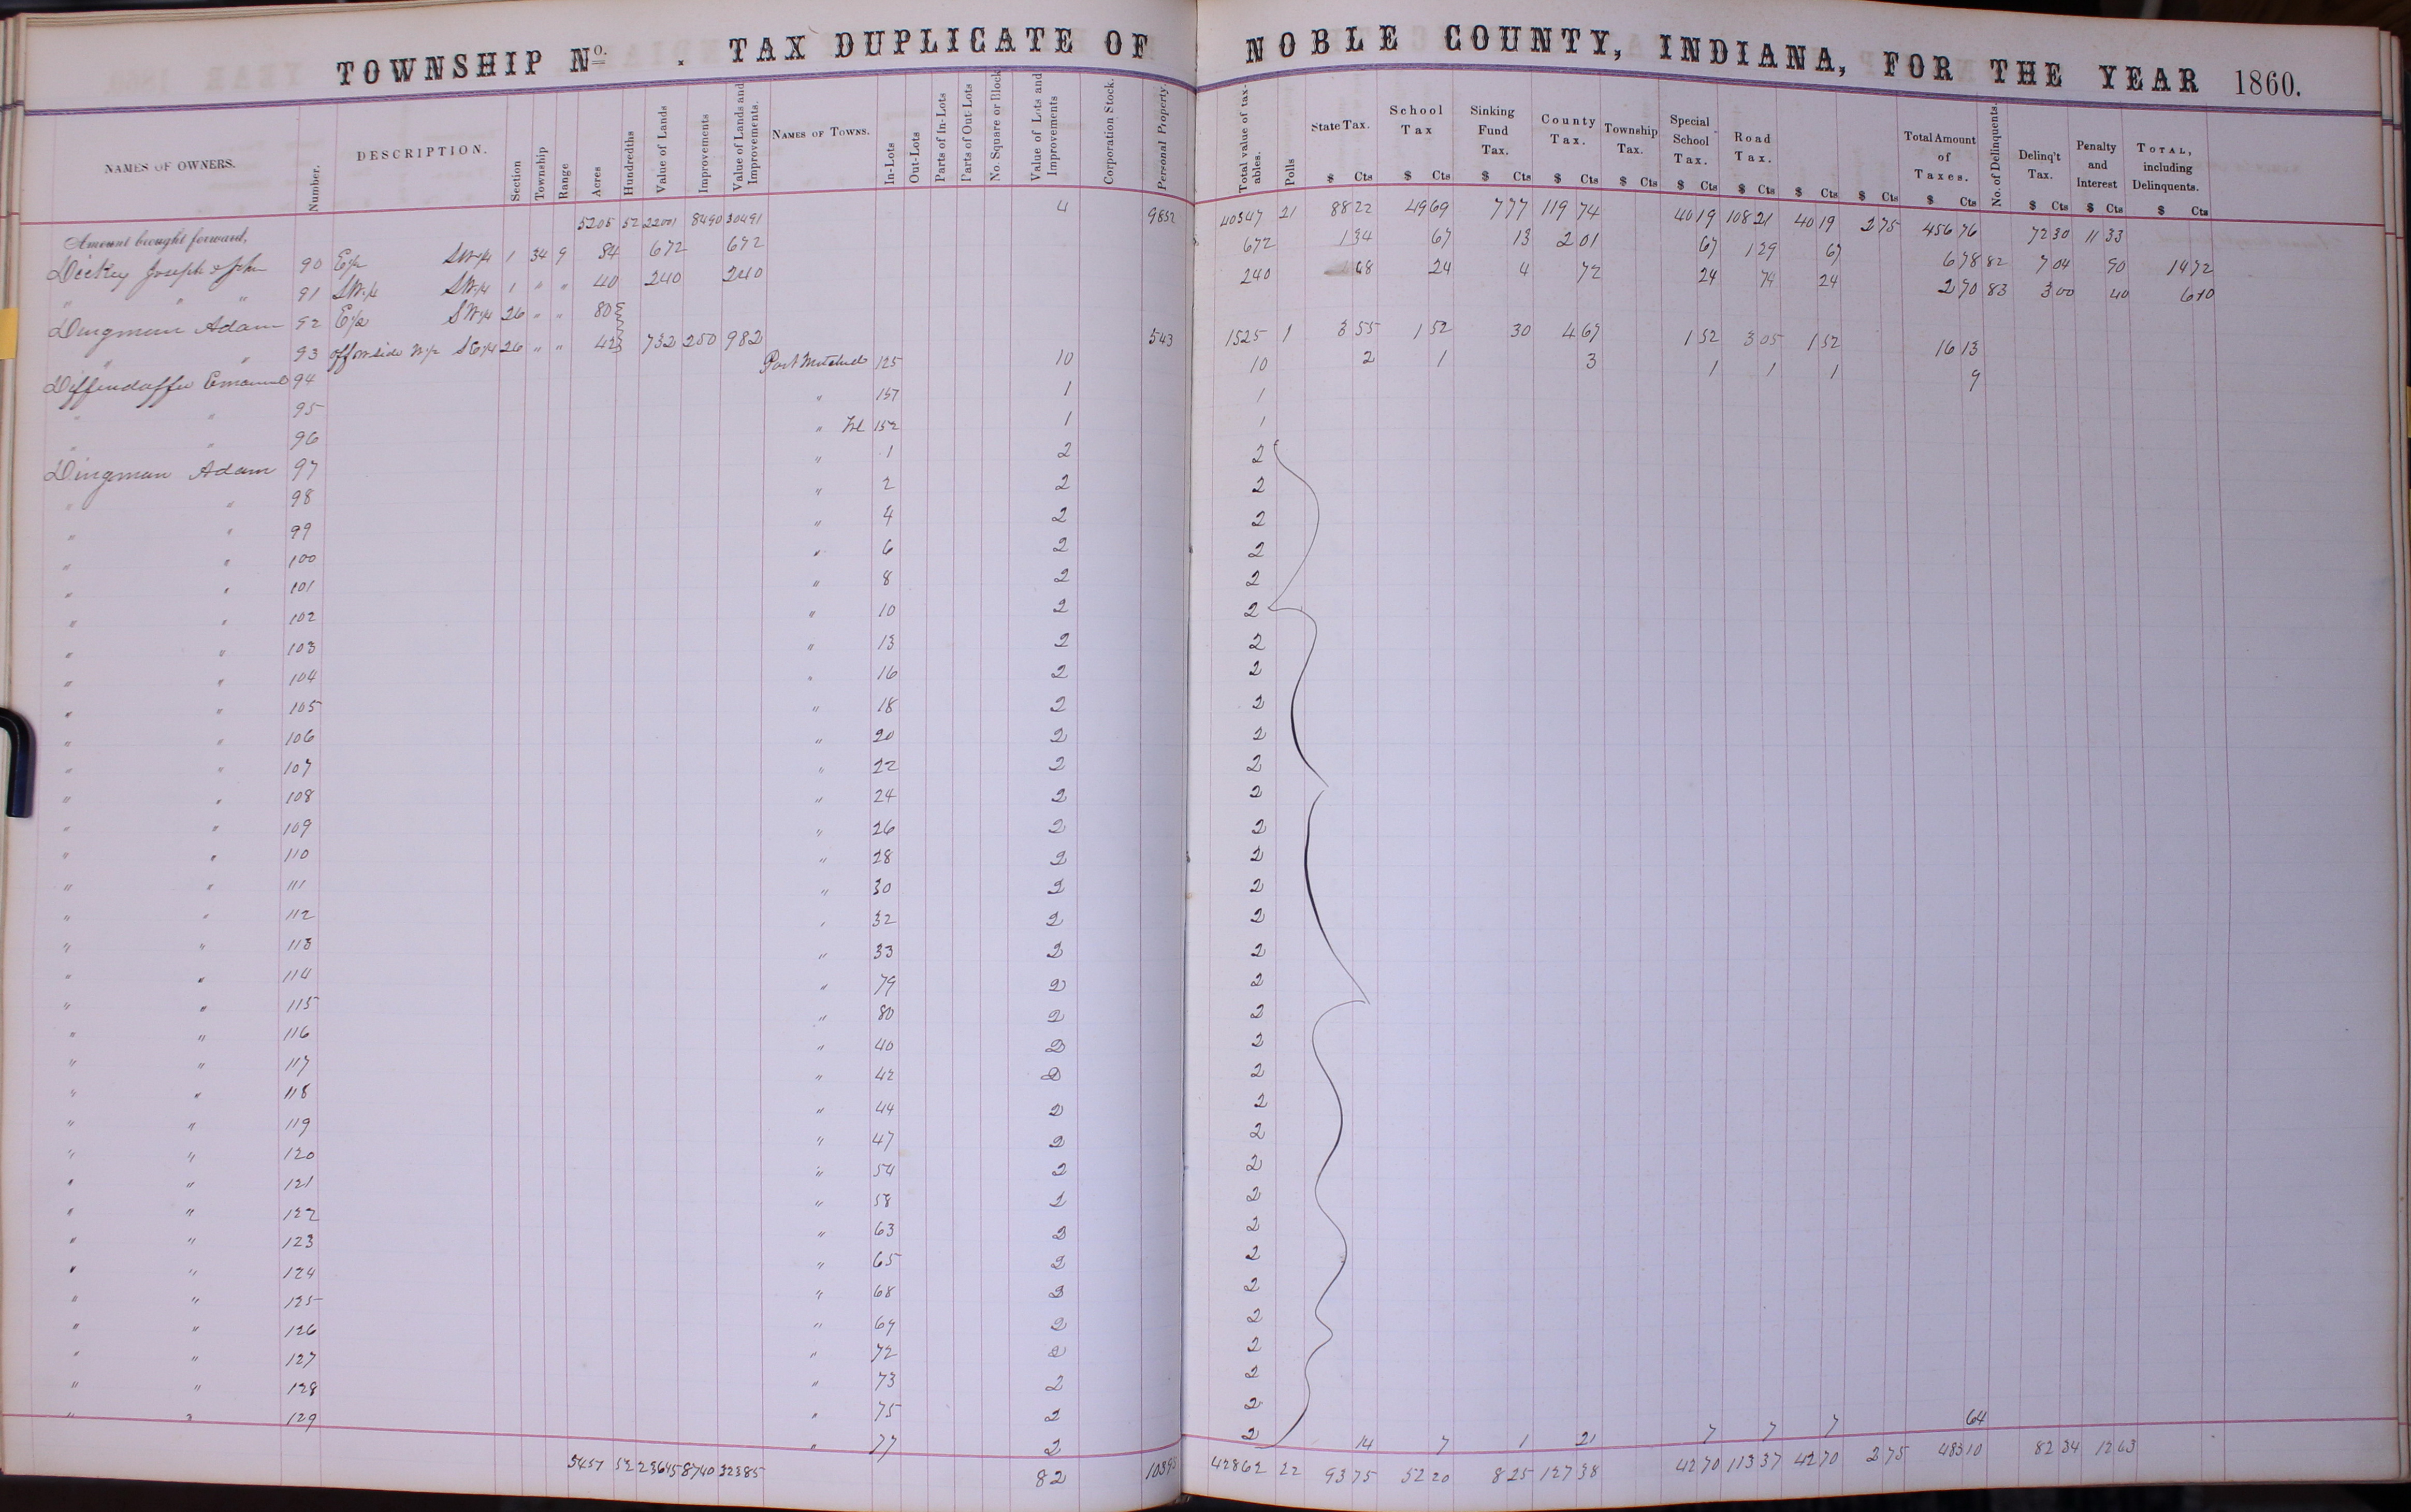 TOWNSHIP No. . TAX DUPLICATE OF NOBLE COUNTY, INDIANA, FOR THE YEAR 1860.
NAMES OF OWNERS. Number. DESCRIPTION. Section Township Range Acres Hundredths Value of Lands Improvements Value of Lands and Improvements. NAMES OF TOWNS. In-Lots Out-Lots Parts of In-Lots Parts of Out-Lots No Square or Block Value of Lots and Improvements Corporation Stock. Personal Property. Total value of tax-ables. Polls State Tax. School Tax Sinking Fund Tax. County Tax. Township Tax. Special School Tax. Road Tax. Total Amount of Taxes. No. of Delinquents. Delinq't Tax. Penalty and Interest TOTAL, including Delinquents.
$ Cts $ Cts $ Cts $ Cts $ Cts $ Cts $ Cts $ Cts $ Cts $ Cts $ Cts $ Cts $ Cts
Amount brought forward, 5205 52 22001 8490 30491 4 9852 40347 21 88 22 49 69 7 77 119 74 40 19 108 21 40 19 2 75 456 76 72 30 11 33
Dickey Joseph & John 90 E½ SW¼ 1 34 9 84 672 672 672 1 34 67 13 2 01 67 1 29 67 6 78 82 7 04 90 14 72
" " " 91 SW¼ SW¼ 1 " " 40 240 240 240 48 24 4 72 24 74 24 2 70 83 3 00 40 6 10
Dingman Adam 92 E½ SW¼ 26 " " 80
" " 93 off on side W½ SE¼ 26 " " 42 732 250 982 543 1525 1 3 55 1 52 30 4 67 1 52 3 05 1 52 16 13
Diffendaffer Emanuel 94 Port Mitchell 125 10 10 2 1 3 1 1 1 9
" " 95 " 157 1 1
" " 96 " 152 1 1
Dingman Adam 97 " 1 2 2
" " 98 " 2 2 2
" " 99 " 4 2 2
" " 100 " 6 2 2
" " 101 " 8 2 2
" " 102 " 10 2 2
" " 103 " 13 2 2
" " 104 " 16 2 2
" " 105 " 18 2 2
" " 106 " 20 2 2
" " 107 " 22 2 2
" " 108 " 24 2 2
" " 109 " 26 2 2
" " 110 " 28 2 2
" " 111 " 30 2 2
" " 112 " 32 2 2
" " 113 " 33 2 2
" " 114 " 79 2 2
" " 115 " 80 2 2
" " 116 " 40 2 2
" " 117 " 42 2 2
" " 118 " 44 2 2
" " 119 " 47 2 2
" " 120 " 54 2 2
" " 121 " 58 2 2
" " 122 " 63 2 2
" " 123 " 65 2 2
" " 124 " 68 2 2
" " 125 " 69 2 2
" " 126 " 72 2 2
" " 127 " 73 2 2
" " 128 " 75 2 2
" " 129 " 77 2 2 14 7 1 21 7 7 7 64
5457 52 23645 8740 32385 82 10395 42862 22 93 75 52 20 8 25 127 38 42 70 113 37 42 70 2 75 483 10 82 34 12 63